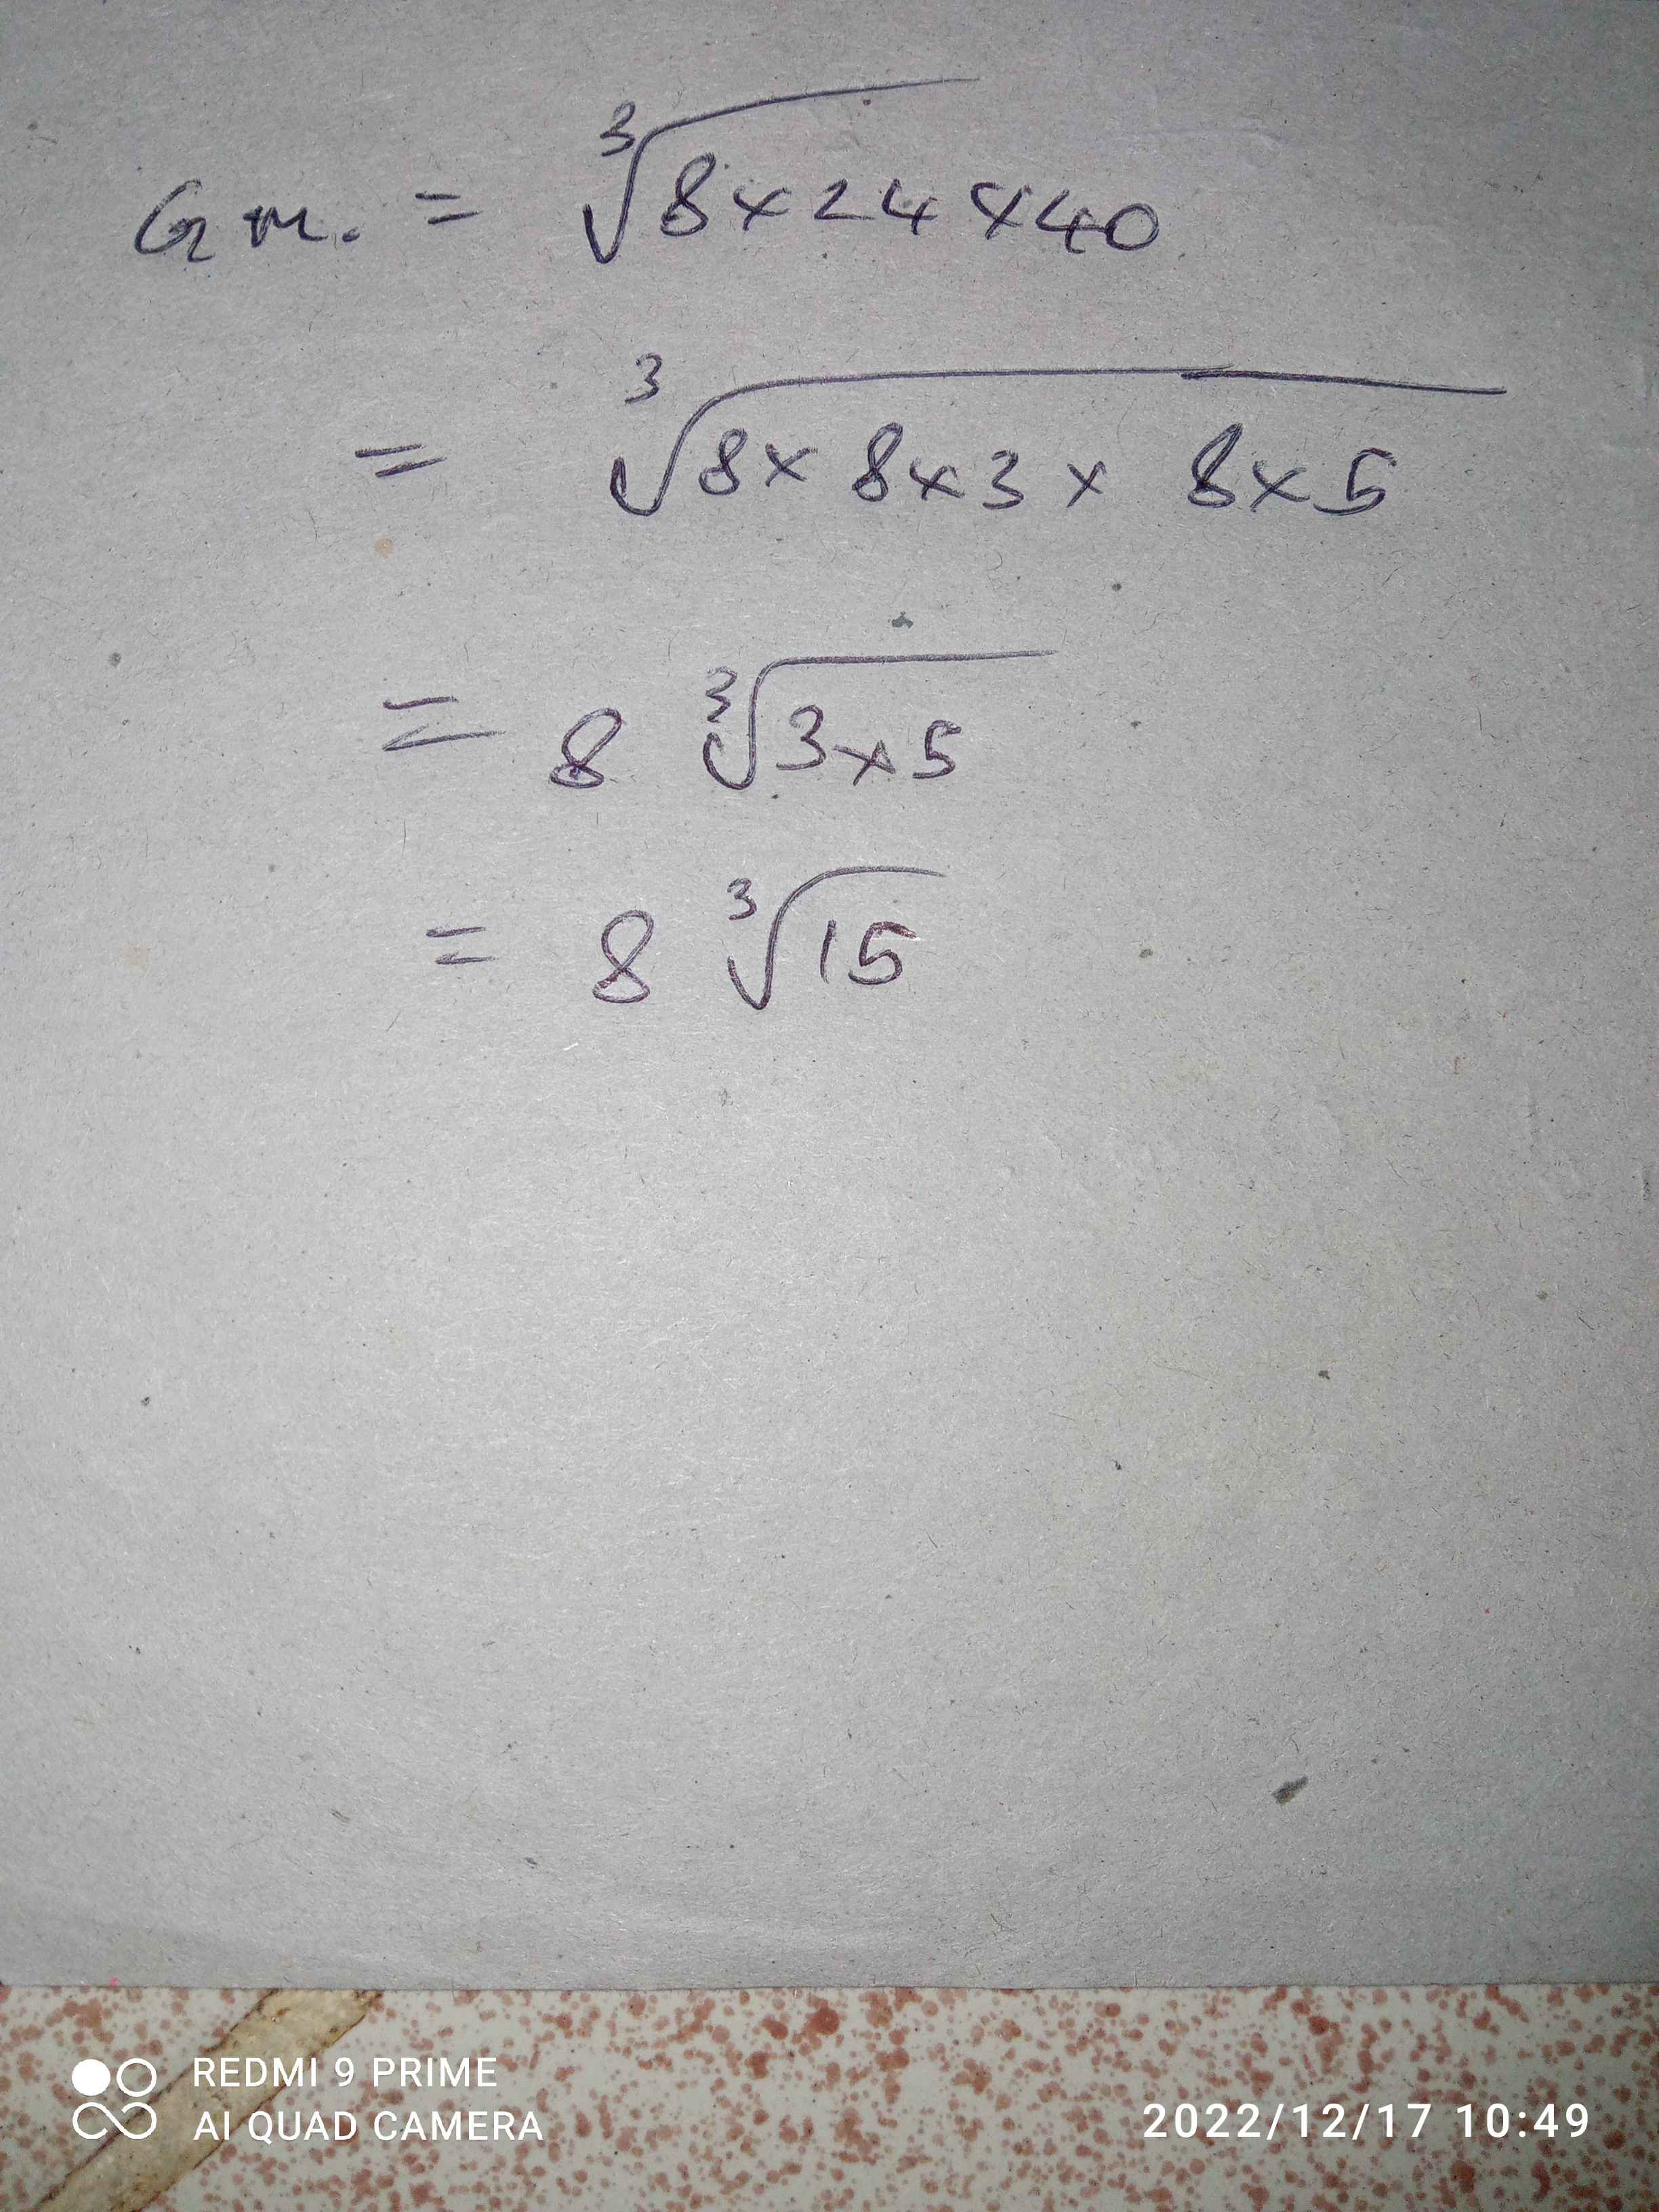 G.M. = ∛8×24×40
= ∛8× 8×3× 8×5
= 8 ∛3×5
= 8 ∛15
REDMI 9 PRIME
AI QUAD CAMERA
2022/12/17 10:49